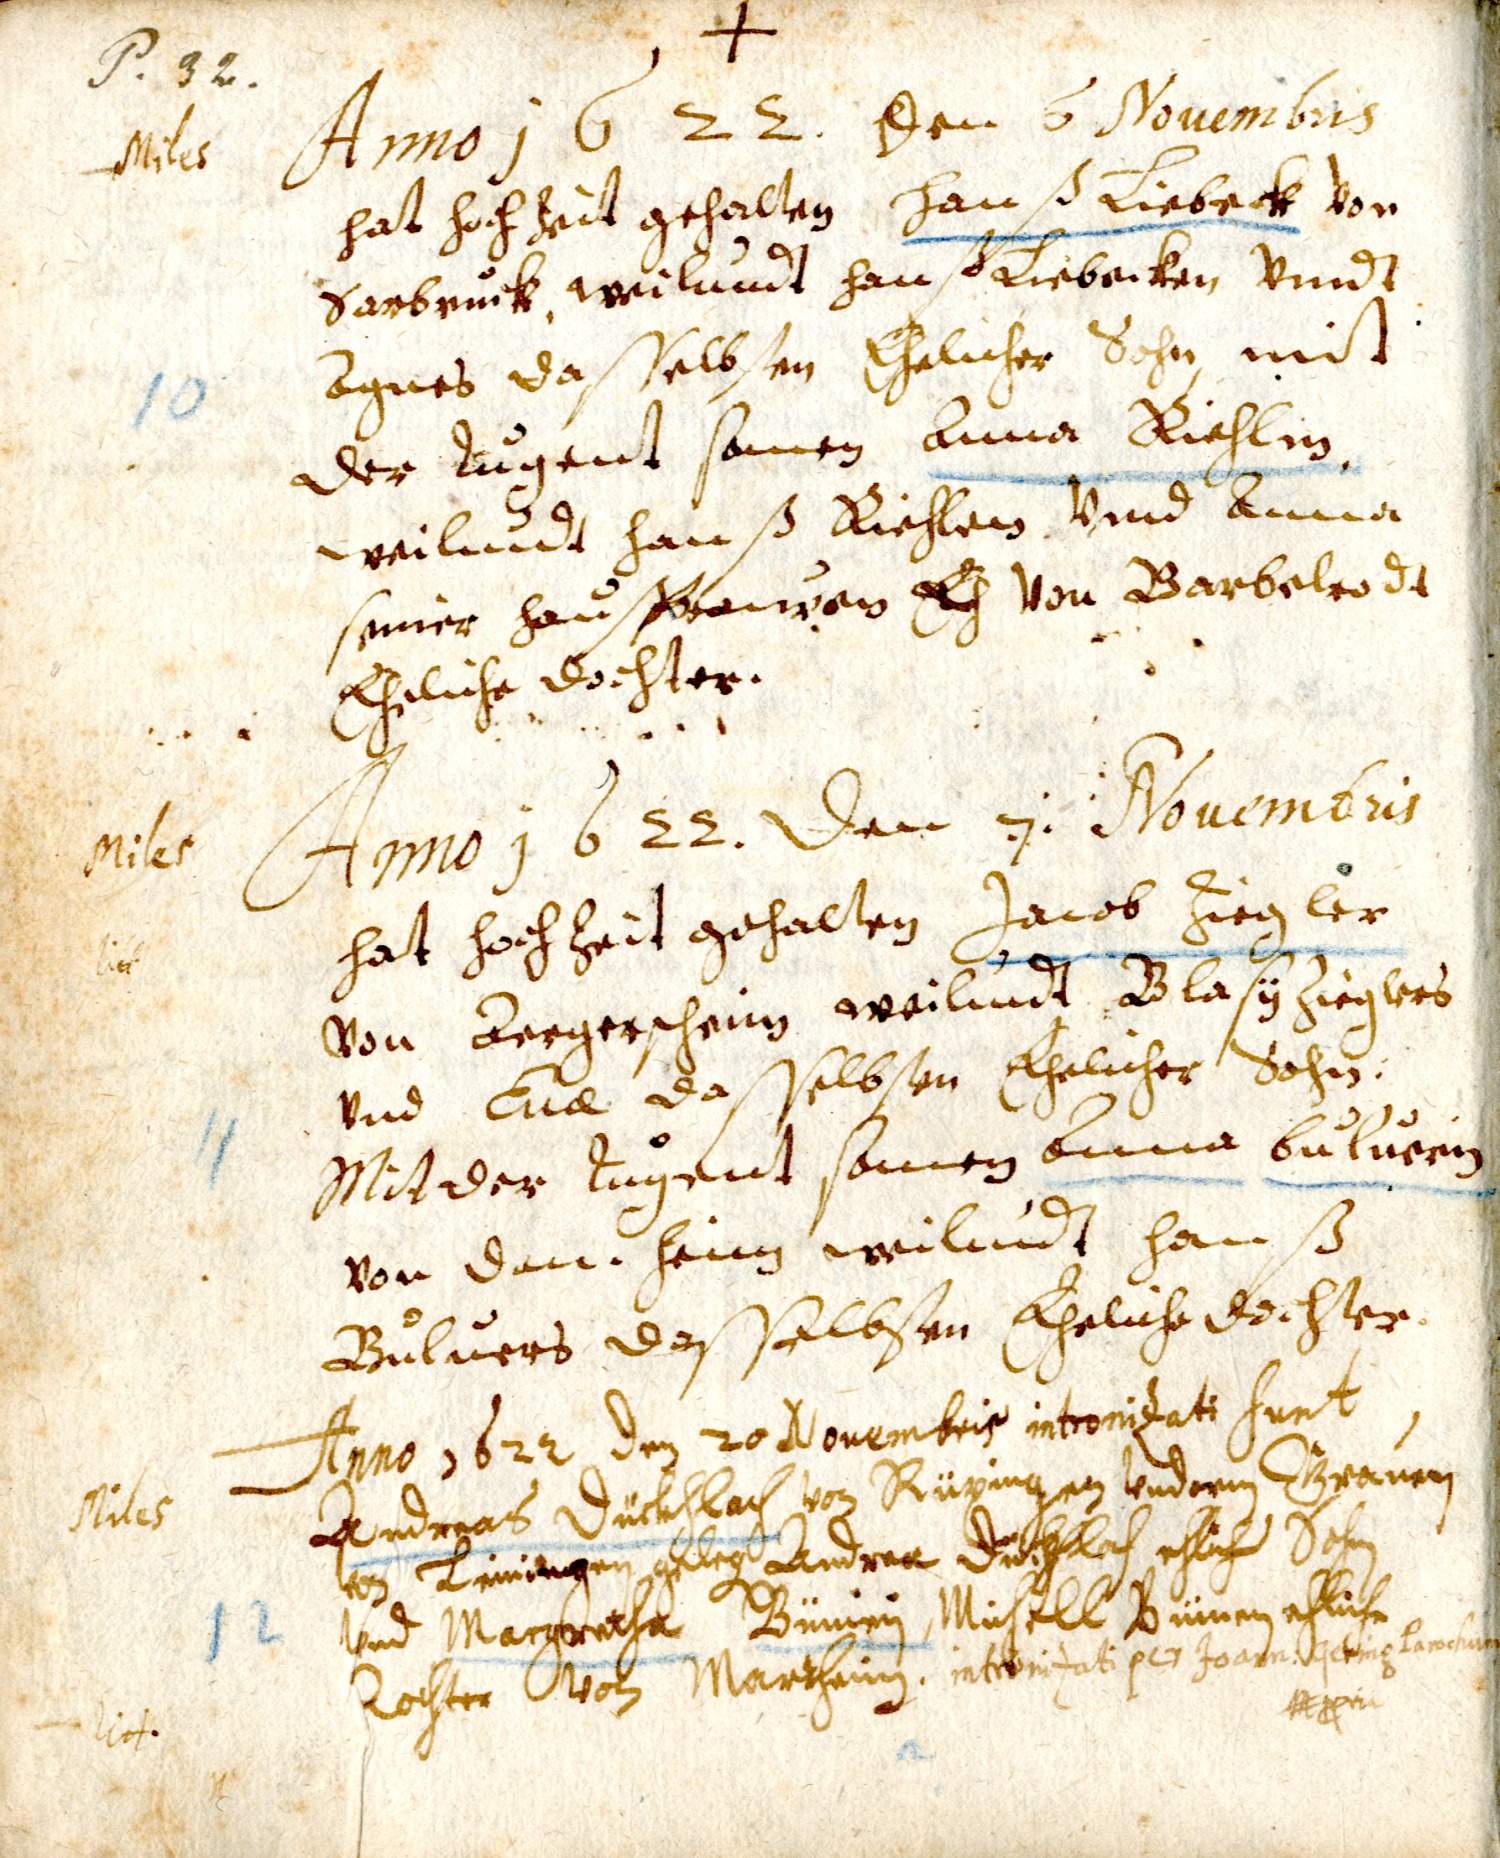 P. 32.
+
Miles
Anno 1622. Den 6 Novembris
hat hochzeit gehalten Hanß Liebeck von
Sarbruck, weilundt Hanß Liebecken vnndt
Agnes dasselbsten Ehelicher Sohn mit
10
der tugent samen Anna Riehlin,
weilundt Hanß Riehlen vnd Anna
seiner haußfrauwen Eh von Barbelrodt
Eheliche dochter.
Miles
Anno 1622. Den 7. Novembris
hat hochzeit gehalten Jacob Ziegler
von Bergerscheim weilundt Blasij Zieglers
vnd Eua dasselbsten Ehelicher Sohn.
11
Mit der tugent samen Anna Buluerin
von Dan. heim weilundt Hanß
Buluers dasselbsten Eheliche dochter.
Anno 1622 den 20 Novembris intronizati sunt
Miles
Andreas von Rüpingen
gelegen Andrea ehlicher Sohn
12
Vnd Margretha Bünien, Michell Bünien ehliche
Tochter von Martheim. intronizati per Joann:
lict.